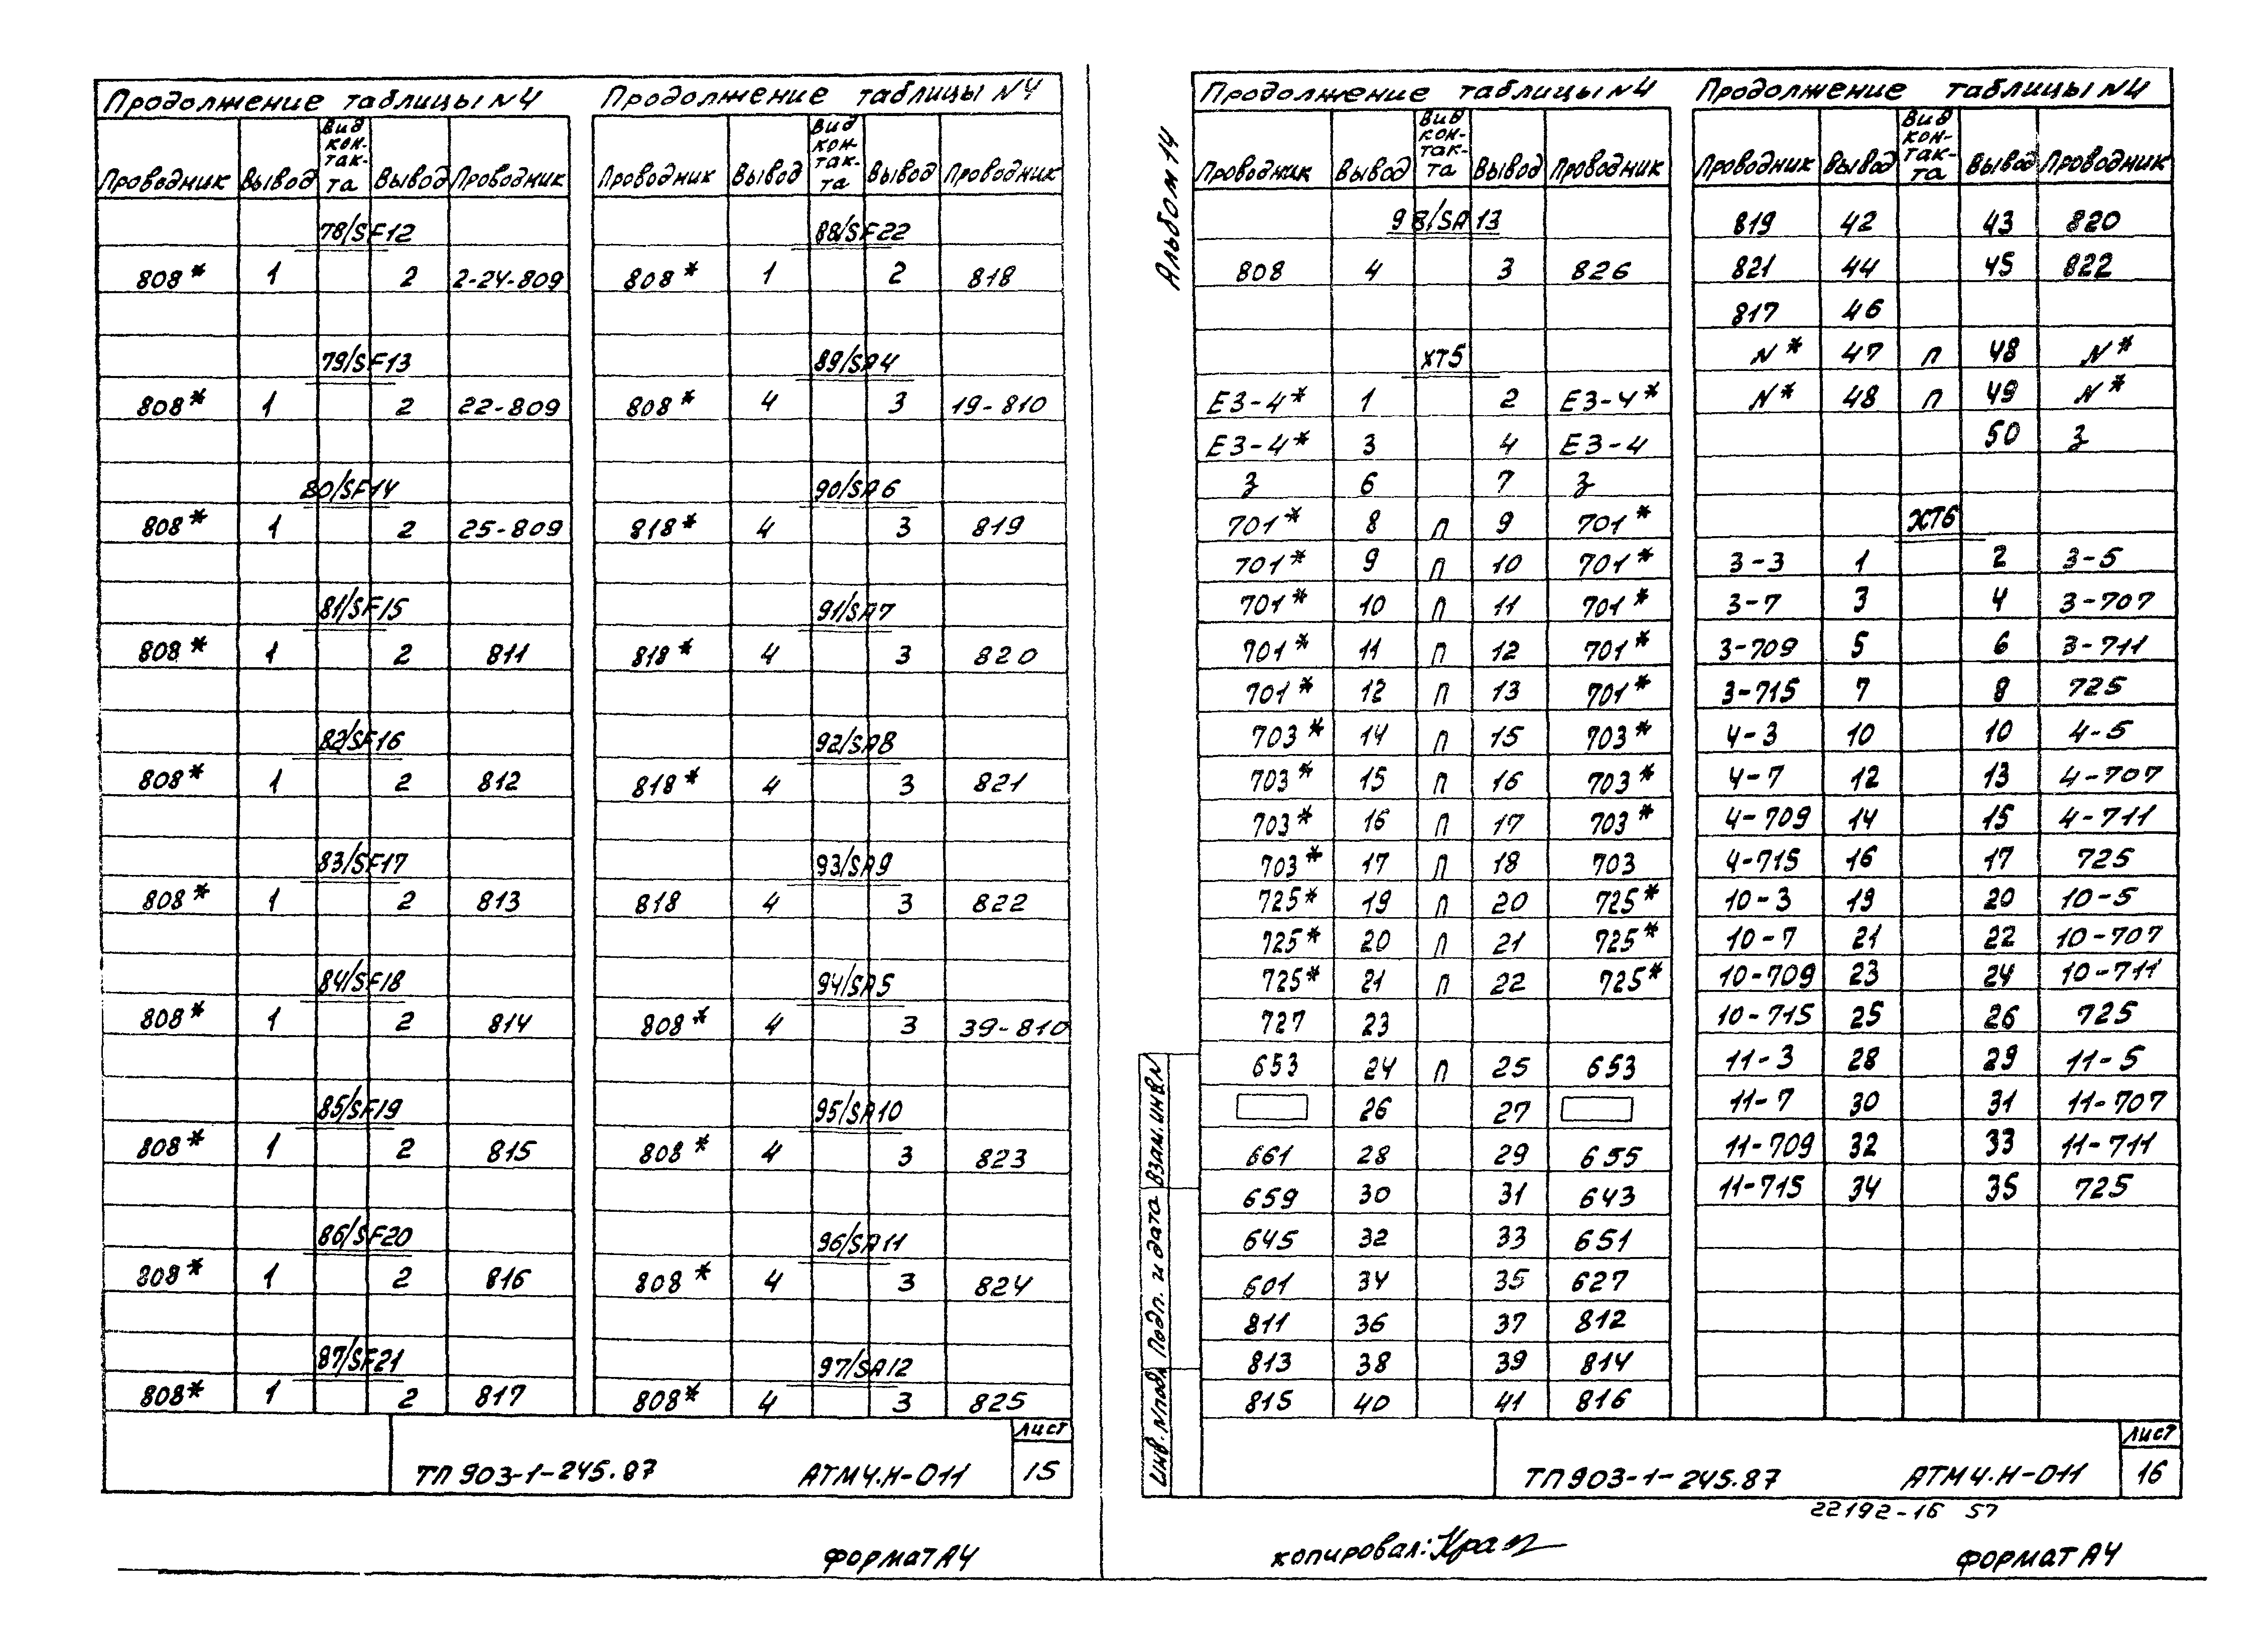 Продолжение таблицы N4
Проводник Вывод Вид кон-так-та Вывод Проводник
78/SF12
808* 1 2 2-24-809
79/SF13
808* 1 2 22-809
80/SF14
808* 1 2 25-809
81/SF15
808* 1 2 811
82/SF16
808* 1 2 812
83/SF17
808* 1 2 813
84/SF18
808* 1 2 814
85/SF19
808* 1 2 815
86/SF20
808* 1 2 816
87/SF21
808* 1 2 817
Продолжение таблицы N4
Проводник Вывод Вид кон-так-та Вывод Проводник
88/SF22
808* 1 2 818
89/SA4
808* 4 3 19-810
90/SA6
818* 4 3 819
91/SA7
818* 4 3 820
92/SA8
818* 4 3 821
93/SA9
818 4 3 822
94/SA5
808* 4 3 39-810
95/SA10
808* 4 3 823
96/SA11
808* 4 3 824
97/SA12
808* 4 3 825
ТП 903-1-245.87 АТМ4.Н-011 Лист 15
Формат А4
Альбом 14
Продолжение таблицы N4
Проводник Вывод Вид кон-так-та Вывод Проводник
98/SA13
808 4 3 826
XT5
E3-4* 1 2 E3-4*
E3-4* 3 4 E3-4
З 6 7 З
701* 8 П 9 701*
701* 9 П 10 701*
701* 10 П 11 701*
701* 11 П 12 701*
701* 12 П 13 701*
703* 14 П 15 703*
703* 15 П 16 703*
703* 16 П 17 703*
703* 17 П 18 703
725* 19 П 20 725*
725* 20 П 21 725*
725* 21 П 22 725*
727 23
653 24 П 25 653
26 27
661 28 29 655
659 30 31 643
645 32 33 651
601 34 35 627
811 36 37 812
813 38 39 814
815 40 41 816
Продолжение таблицы N4
Проводник Вывод Вид кон-так-та Вывод Проводник
819 42 43 820
821 44 45 822
817 46
N* 47 П 48 N*
N* 48 П 49 N*
50 З
XT6
3-3 1 2 3-5
3-7 3 4 3-707
3-709 5 6 3-711
3-715 7 8 725
4-3 10 10 4-5
4-7 12 13 4-707
4-709 14 15 4-711
4-715 16 17 725
10-3 19 20 10-5
10-7 21 22 10-707
10-709 23 24 10-711
10-715 25 26 725
11-3 28 29 11-5
11-7 30 31 11-707
11-709 32 33 11-711
11-715 34 35 725
Инв. N подл. Подп. и дата Взам. инв N
ТП 903-1-245.87 АТМ4.Н-011 Лист 16
22192-16 57
копировал:
Формат А4